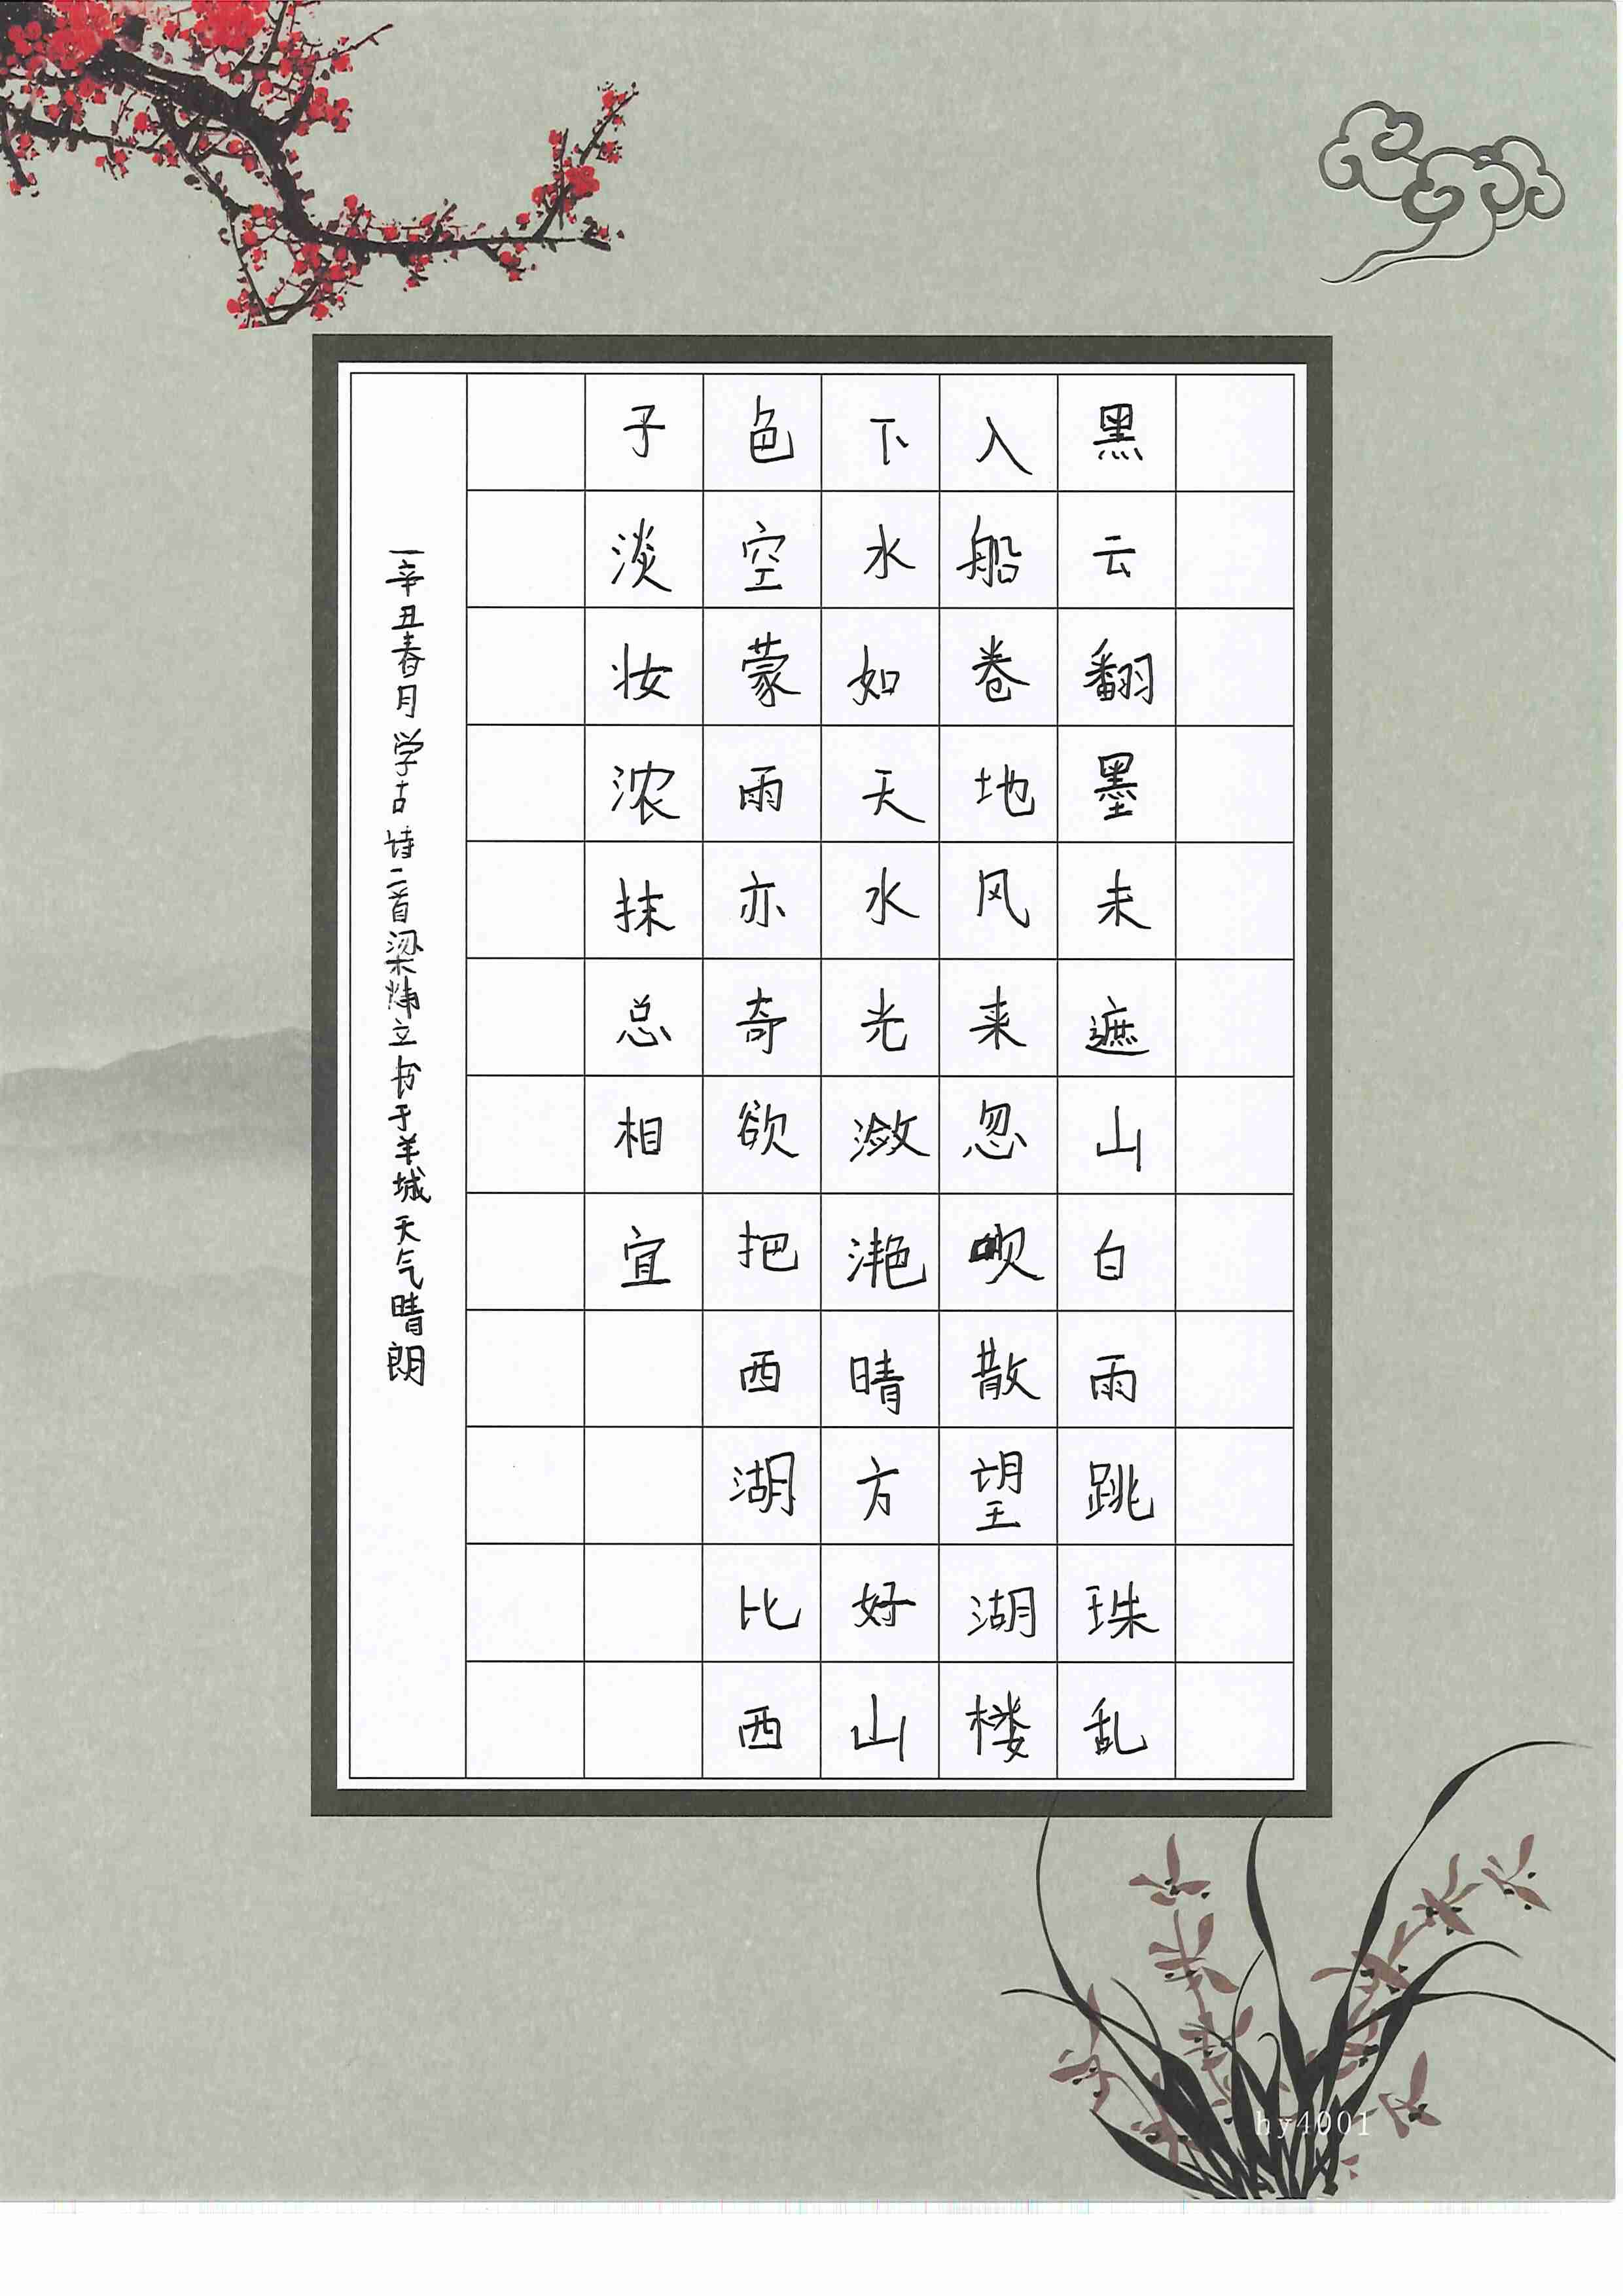 黑云翻墨未遮山白雨跳珠乱
入船卷地风来忽吹散望湖楼
下水如天水光潋滟晴方好山
色空蒙雨亦奇欲把西湖比西
子淡妆浓抹总相宜
辛丑春月学古诗二首梁炜立书于羊城天气晴朗
hy4001